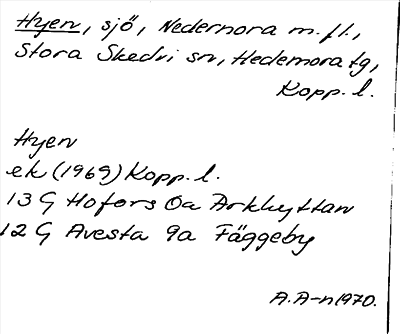 Hyen, sjö, Nedernora m. fl.,
Stora Skedvi sn, Hedemora tg,
Kopp. l.
Hyen
ek (1969) Kopp. l.
13 G Hofors 0a Arkhyttan
12 G Avesta 9a Fäggeby
A.A-n 1970.